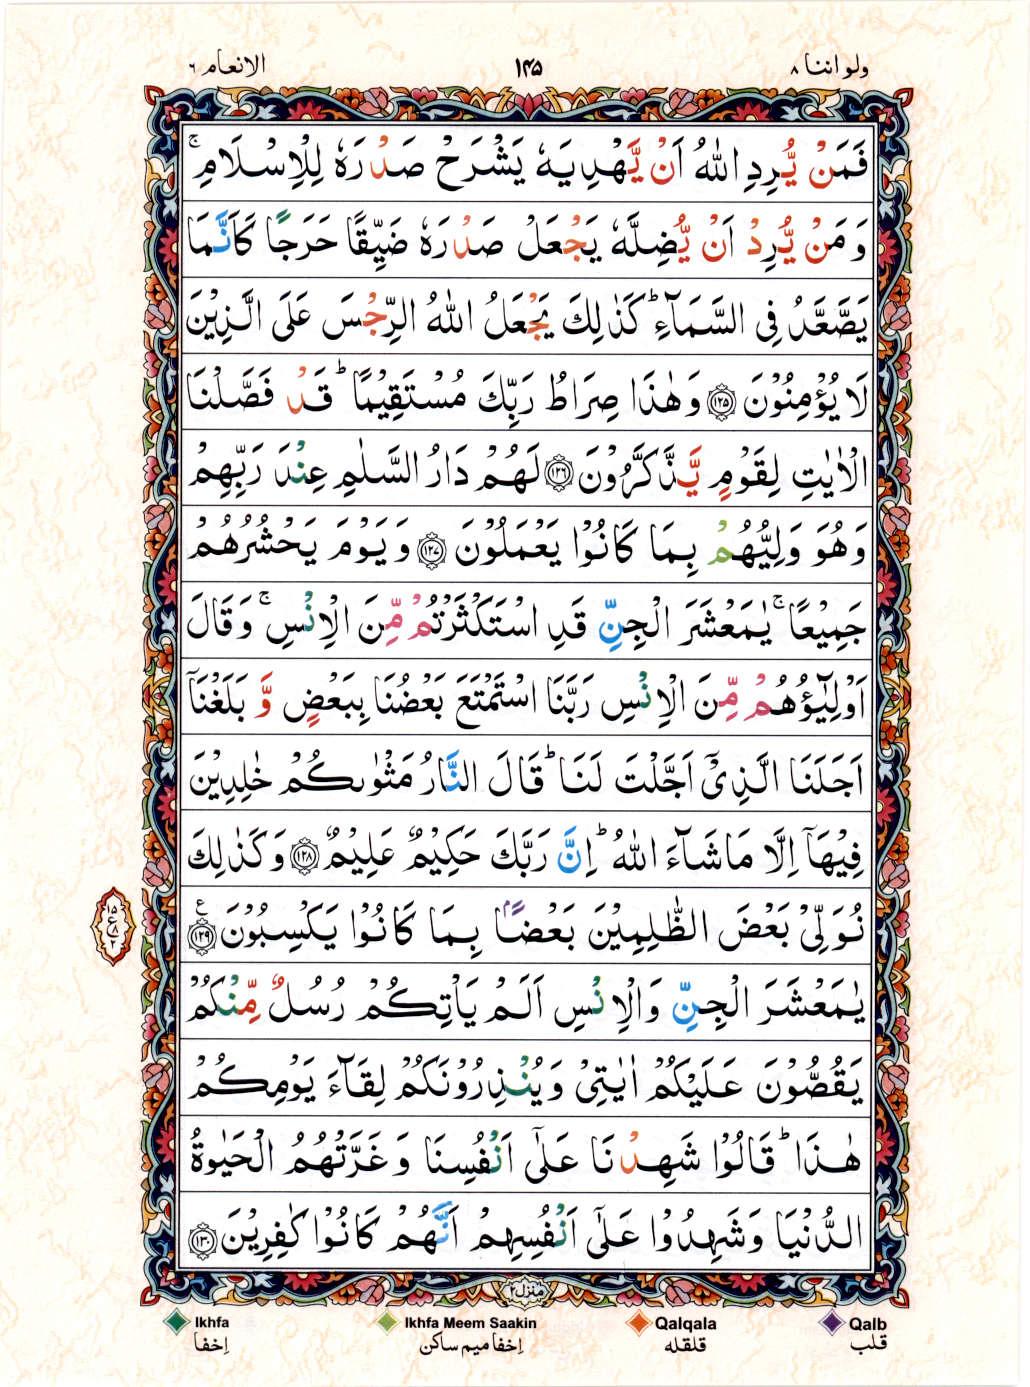 ولو اننا ٨
١٤٥
الانعام ٦
فَمَنْ يُّرِدِ اللّٰهُ اَنْ يَّهْدِيَهٗ يَشْرَحْ صَدْرَهٗ لِلْاِسْلَامِ ۚ
وَمَنْ يُّرِدْ اَنْ يُّضِلَّهٗ يَجْعَلْ صَدْرَهٗ ضَيِّقًا حَرَجًا كَاَنَّمَا
يَصَّعَّدُ فِى السَّمَآءِ ؕ كَذٰلِكَ يَجْعَلُ اللّٰهُ الرِّجْسَ عَلَى الَّذِيْنَ
لَا يُؤْمِنُوْنَ ﴿١٢٥﴾ وَهٰذَا صِرَاطُ رَبِّكَ مُسْتَقِيْمًا ؕ قَدْ فَصَّلْنَا
الْاٰيٰتِ لِقَوْمٍ يَّذَّكَّرُوْنَ ﴿١٢٦﴾ لَهُمْ دَارُ السَّلٰمِ عِنْدَ رَبِّهِمْ
وَهُوَ وَلِيُّهُمْ بِمَا كَانُوْا يَعْمَلُوْنَ ﴿١٢٧﴾ وَيَوْمَ يَحْشُرُهُمْ
جَمِيْعًا ۚ يٰمَعْشَرَ الْجِنِّ قَدِ اسْتَكْثَرْتُمْ مِّنَ الْاِنْسِ ۚ وَقَالَ
اَوْلِيٰٓؤُهُمْ مِّنَ الْاِنْسِ رَبَّنَا اسْتَمْتَعَ بَعْضُنَا بِبَعْضٍ وَّ بَلَغْنَآ
اَجَلَنَا الَّذِىْٓ اَجَّلْتَ لَنَا ؕ قَالَ النَّارُ مَثْوٰىكُمْ خٰلِدِيْنَ
فِيْهَآ اِلَّا مَاشَآءَ اللّٰهُ ؕ اِنَّ رَبَّكَ حَكِيْمٌ عَلِيْمٌ ﴿١٢٨﴾ وَكَذٰلِكَ
نُوَلِّىْ بَعْضَ الظّٰلِمِيْنَ بَعْضًاۢ بِمَا كَانُوْا يَكْسِبُوْنَ ﴿١٢٩﴾ ع
يٰمَعْشَرَ الْجِنِّ وَالْاِنْسِ اَلَمْ يَاْتِكُمْ رُسُلٌ مِّنْكُمْ
يَقُصُّوْنَ عَلَيْكُمْ اٰيٰتِىْ وَيُنْذِرُوْنَكُمْ لِقَآءَ يَوْمِكُمْ
هٰذَا ؕ قَالُوْا شَهِدْنَا عَلٰٓى اَنْفُسِنَا وَغَرَّتْهُمُ الْحَيٰوةُ
الدُّنْيَا وَشَهِدُوْا عَلٰٓى اَنْفُسِهِمْ اَنَّهُمْ كَانُوْا كٰفِرِيْنَ ﴿١٣٠﴾
منزل ٢
Ikhfa
اِخفا
Ikhfa Meem Saakin
اِخفا ميم ساکن
Qalqala
قلقله
Qalb
قلب